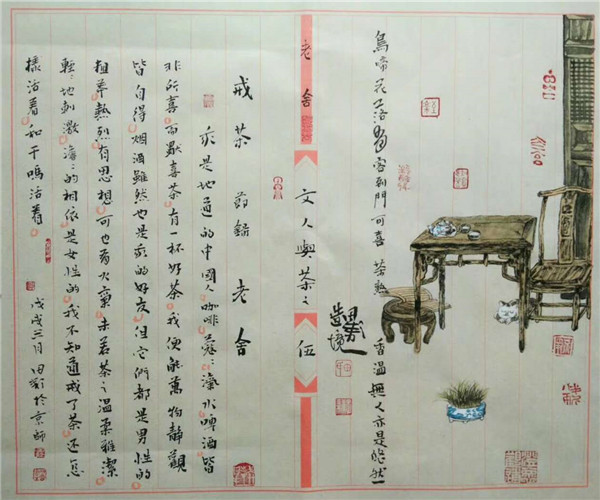 有客到門可喜 茶熟
香溫無人亦是悠然
老舍
文人與茶之
伍
戒茶 節錄 老舍
我是地道的中國人咖啡蔻蔻汽水啤酒皆
非所喜而獨喜茶有一杯好茶我便能萬物靜觀
皆自得烟酒雖然也是我的好友但它們都是男性的
粗莽熱烈有思想可也有火氣未若茶之溫柔雅潔
輕輕地刺激淡淡的相依是女性的我不知道戒了茶還怎
樣活着和干嗎活着
戊戌三月 田 於京師